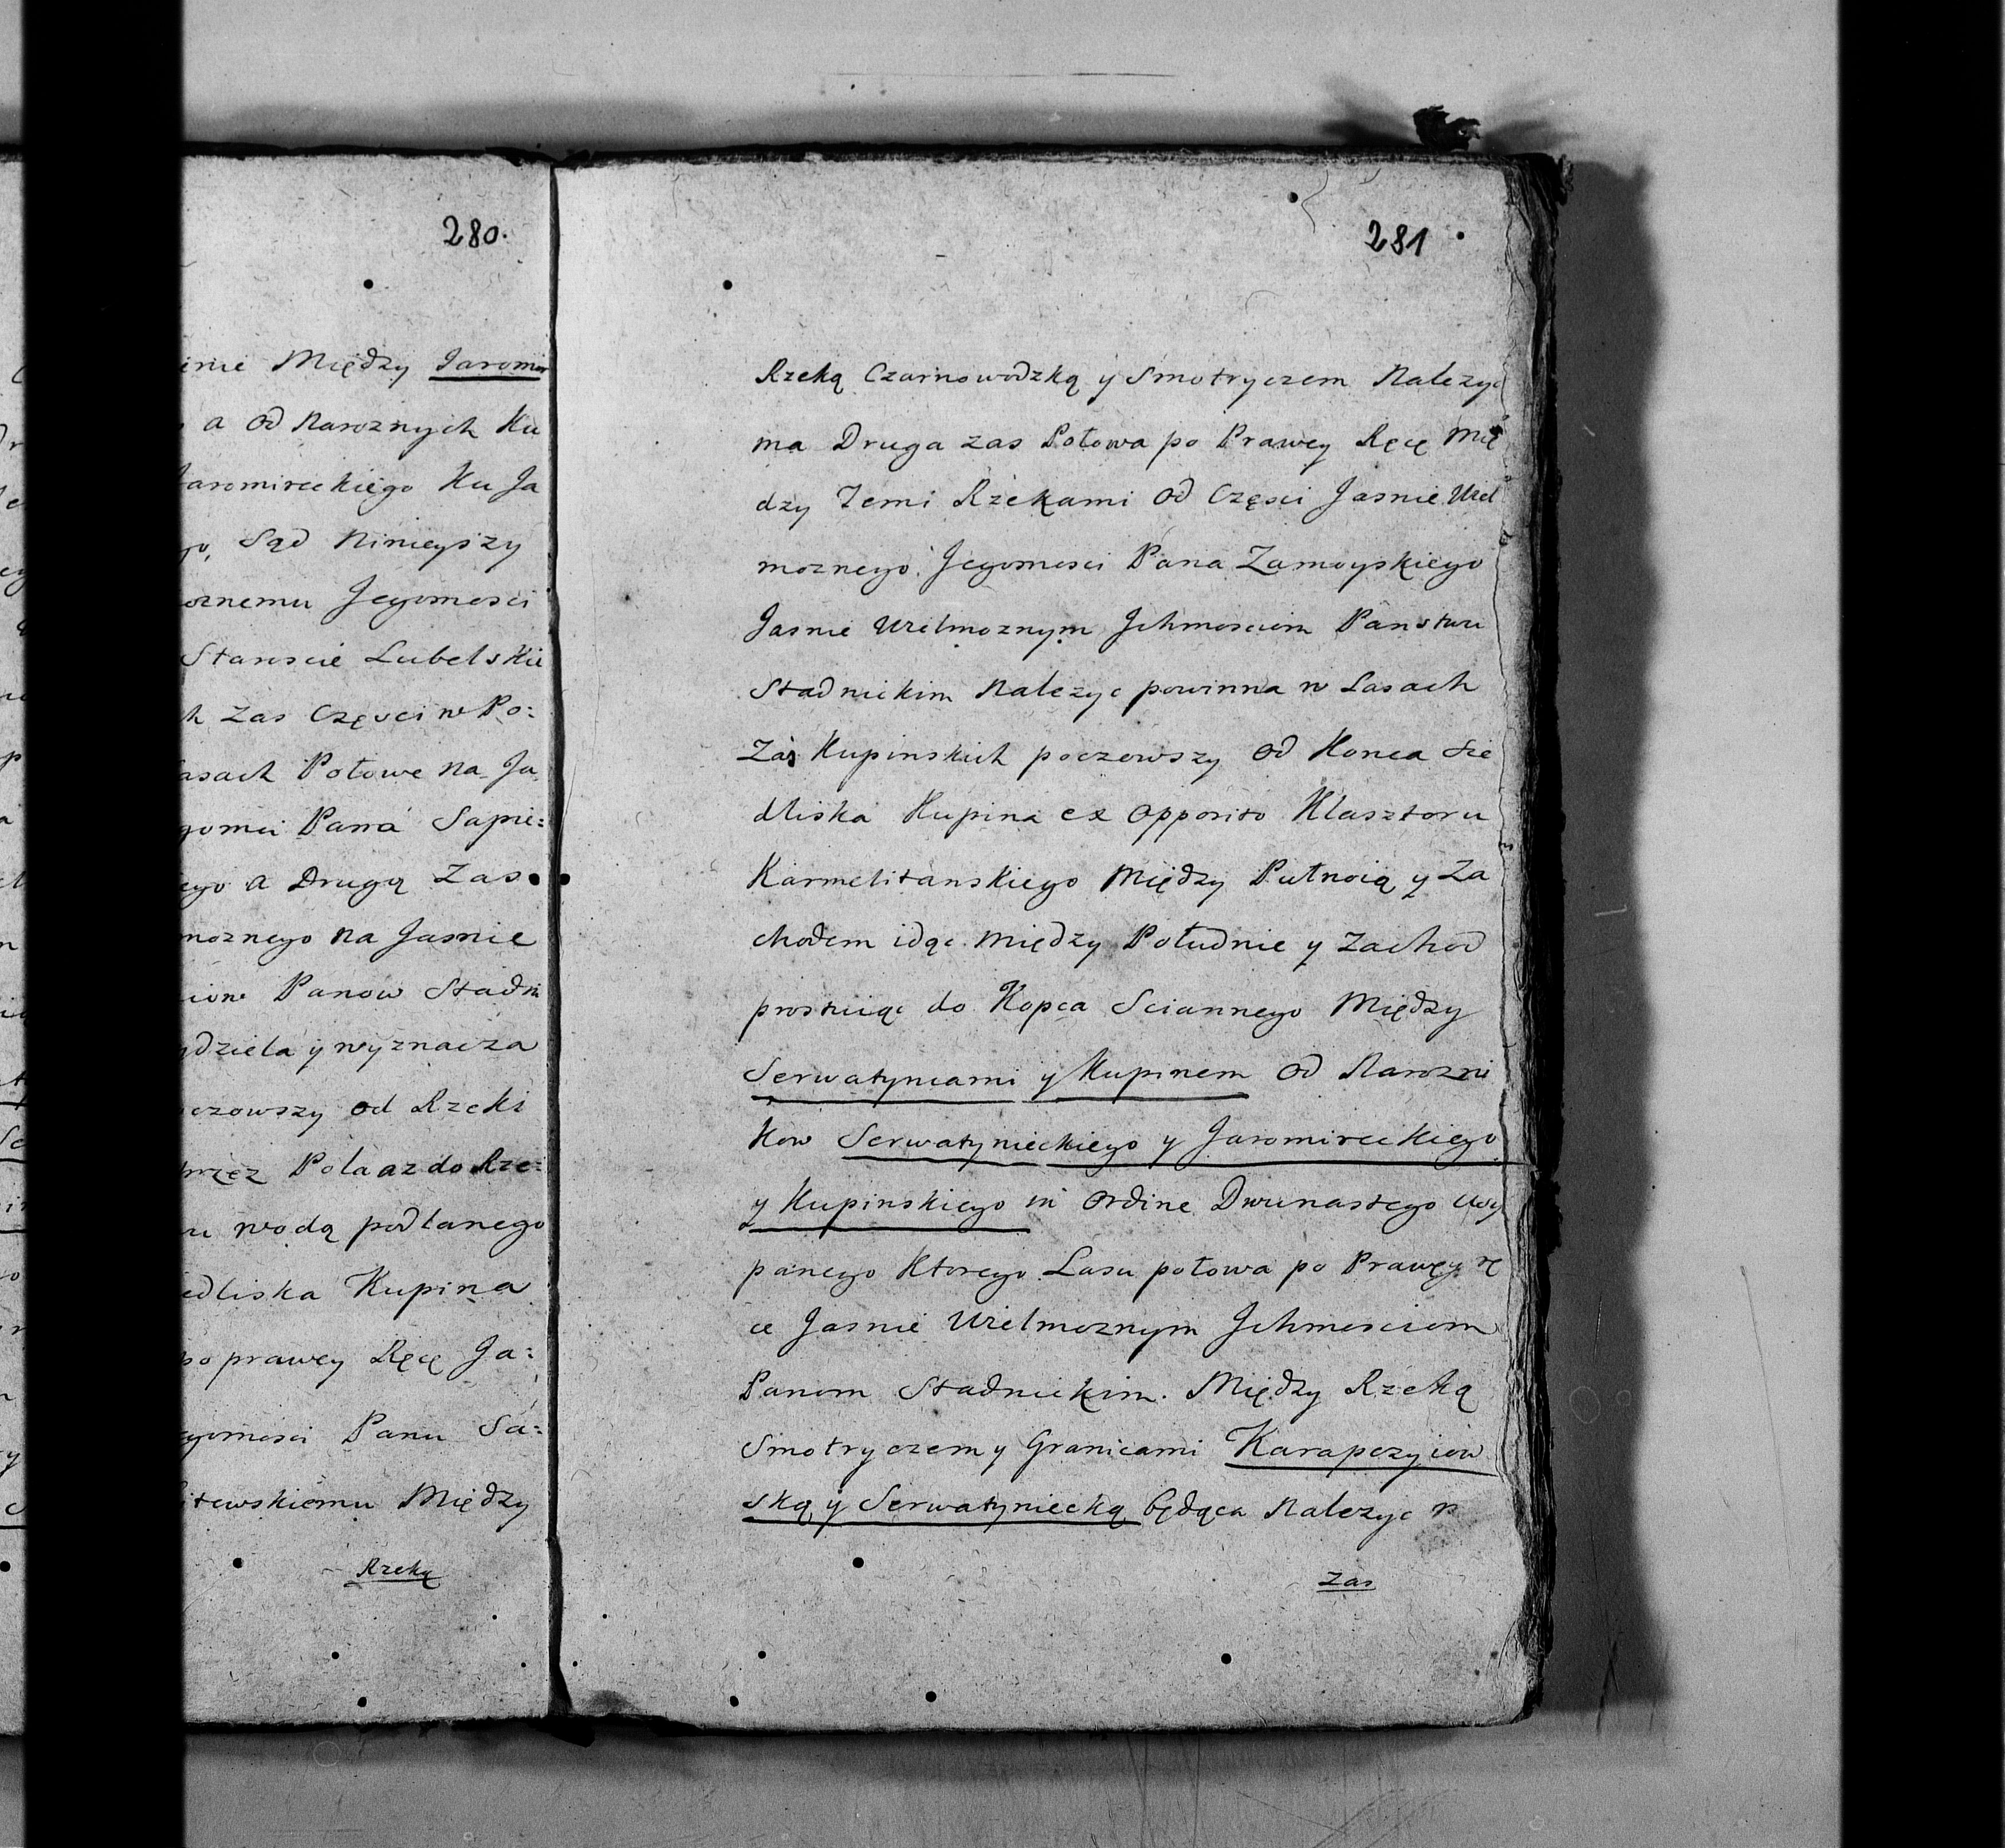 280.
Między Jaromir
a od Naroznych Ku
Jaromireckiego Ku Ja
Sąd Ninieyszy
Jegomosci
Staroscie Lubelskie
Zas Częsci w Po:
Połowe na Ja
Pana Sapie:
a Drugą Zas
na Jasnie
Panow Stadni
y wyznacza
od Rzeki
Pola az do Rze:
wodą podlanego
Kupina
po prawey Ręcę Ja:
Panu Sa:
Między
Rzeką
281
Rzeką Czarnowodzką y Smotryczem Nalezyc
ma Druga zas Połowa po Prawey Ręcę Mię
dzy Temi Rzekami od Częsci Jasnie Wiel
moznego Jegomosci Pana Zamoyskiego
Jasnie Wielmoznym Jchmosciom Panstwu
Stadnickim Nalezyc powinna w Lasach
Zas Kupinskich poczowszy od Konca Sie
dliska Kupina ex Opposito Klasztoru
Karmelitanskiego Między Pułnoią y Za
chodem idąc między Południe y Zachod
prostuiąc do Kopca Sciannego Między
Serwatyncami y Kupinem od Narozni
kow Serwatynieckiego y Jaromireckiego
y Kupinskiego in Ordine Dwunastego Usy
panego Ktorego Lasu połowa po Prawey rę
ce Jasnie Wielmoznym Jchmosciom
Panom Stadnickim. Między Rzeką
Smotryczem y Granicami Karapczyiow
ską y Serwatyniecką będąca Nalezyc
Zas